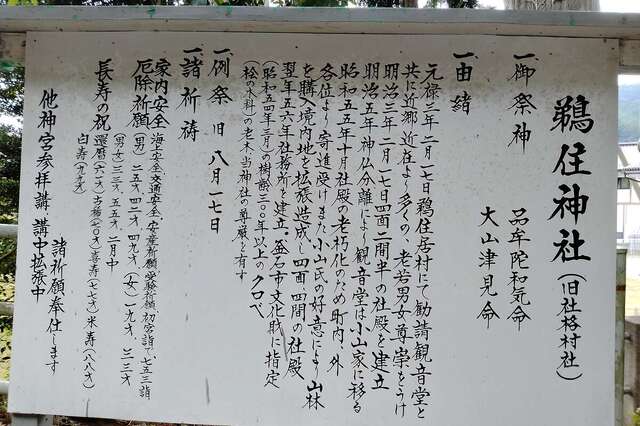 鵜住神社（旧社格村社）
一御祭神
品牟陀和気命
大山津見命
一由緒
元禄三年二月一七日鵜住居村にて勧請観音堂と
共に近郷近在より多くの、老若男女尊崇をうけ
明治三年二月一七日四面二間半の社殿を建立
明治五年神仏分離により観音堂は小山家に移る
昭和五五年十月社殿の老朽化のため町内、外
各位より寄進受けまた小山氏の好意により山林
を購入境内地を拡張造成し四面四間の社殿
翌年五六年社務所を建立。釜石市文化財に指定
（昭和五四年三月）の樹齢三〇〇年以上のクロベ、
（桧の又科）の老木当神社の尊厳を有す
一例祭 旧 八月一七日
一諸祈祷
家内安全、海上安全、交通安全、安産祈願、学業祈願、初宮詣で、七五三詣
厄除祈願（男）二五才、四二才、四九才、（女）一九才、三三才
（男女）三三才、五五才、二月中
長寿の祝 還暦（六一才）古稀（七〇才）喜寿（七七才）米寿（八八才）
白寿（九九才）
諸祈願奉仕します
他神宮参拝講 講中拡張中